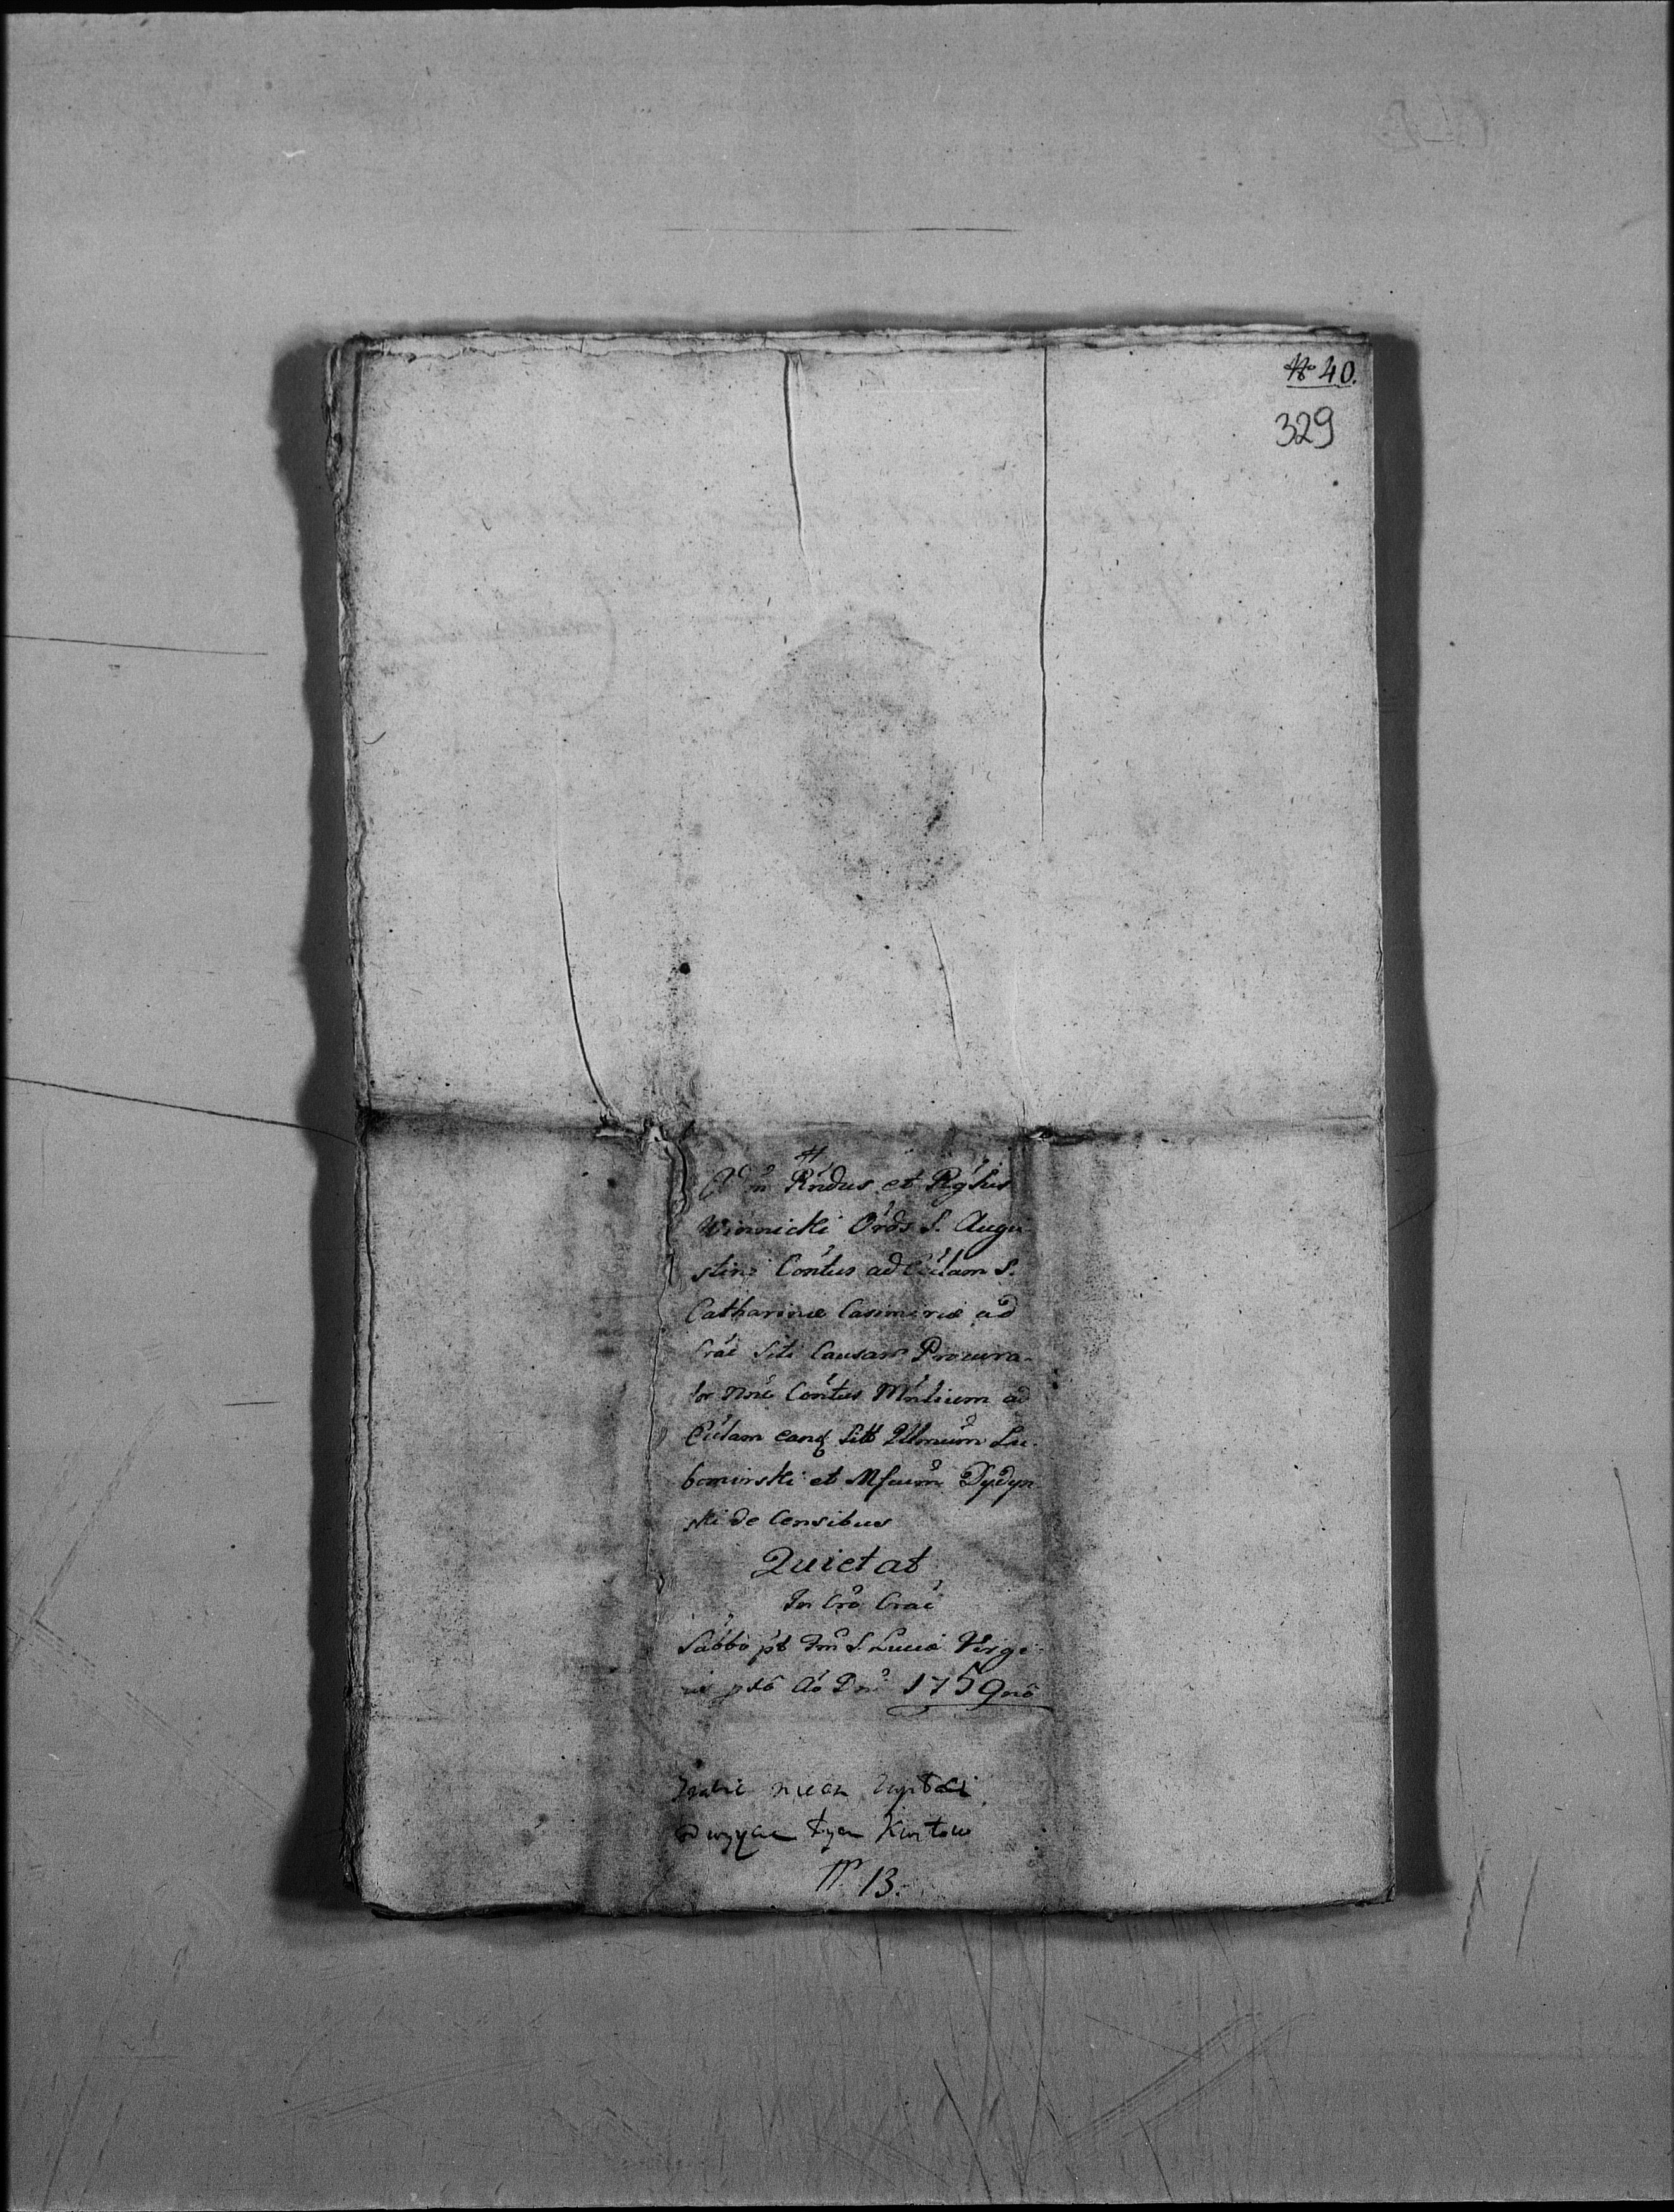 No 40.
329
Adm Rndus et Rglus
Winnicki Ords S. Augu
stini Contus ad Eccłam S.
Catharinæ Casimiriæ ad
Crac Siti Causar Procura-
tor Noie Contus Mnlium ad
Ecłam eand Siti Illmum Lu-
bomirski et Mfcum Dydyn
ski de Censibus
Quietat
In Cro Crac
Sabbo pt Fm S. Luciæ Virgi-
nis Ao Dni 1759no
tych
No 13.